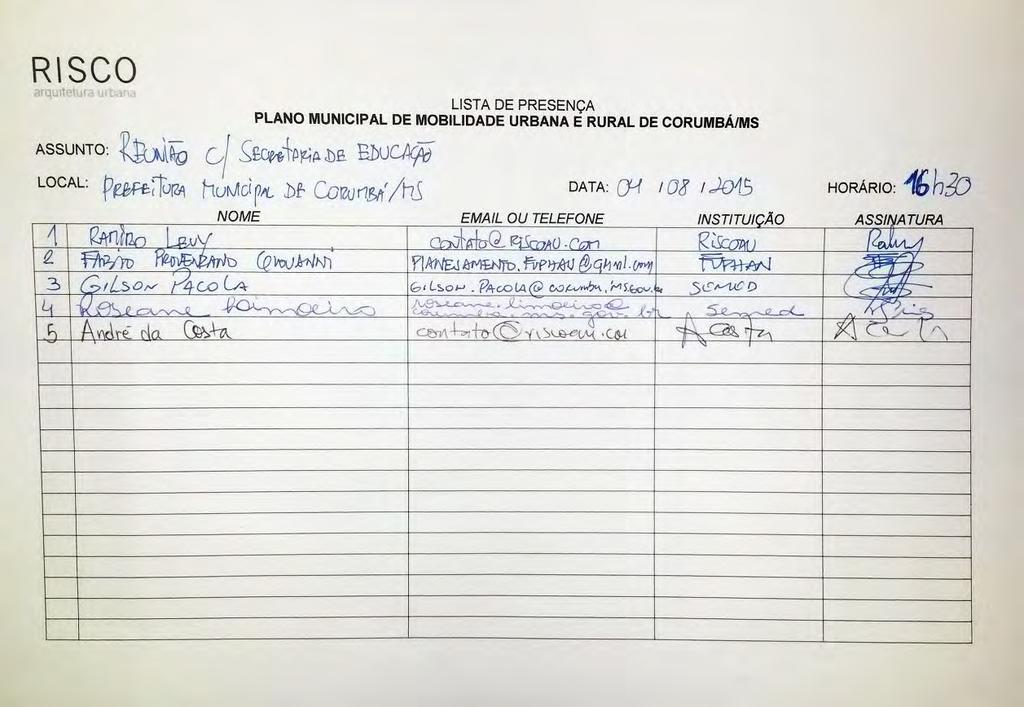 RISCO
arquitetura urbana
LISTA DE PRESENÇA
PLANO MUNICIPAL DE MOBILIDADE URBANA E RURAL DE CORUMBÁ/MS
ASSUNTO: REUNIÃO C/ SECRETARIA DE EDUCAÇÃO
LOCAL: PREFEITURA MUNICIPAL DE CORUMBÁ/MS DATA: 04 / 08 / 2015 HORÁRIO: 16h30
NOME EMAIL OU TELEFONE INSTITUIÇÃO ASSINATURA
1 RAMIRO LEVY CONTATO@RISCOAU.COM RISCOAU
2 FABIO PROVENZANO GIOVANNI PLANEJAMENTO.FUPHAN@GMAIL.COM FUPHAN
3 GILSON PACOLA GILSON.PACOLA@CORUMBA.MS.GOV.BR SEMED
4 Roseane Limoeiro roseane.limoeiro@corumba.ms.gov.br Semed
5 André da Costa contato@riscoau.com A Costa